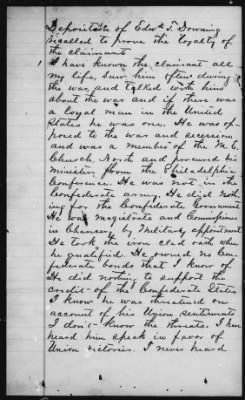 Deposition of Edwd T. Downing
recalled to prove the loyalty of
the claimant
1 I have known the claimant all
my life, saw him often during
the war and talked with him
about the war and if there was
a loyal man in the United
States he was one. He was op-
posed to the war and secession
and was a member of the M. E.
Church, North and received his
Minister from the Philadelphia
Conference. He was not in the
Confederate army, He did noth
ing for the Confederate Government
He was magistrate and Commissioner
in Chancery by Military appointment
He took the iron clad oath when
he qualified. He owned no Con
federate bonds that I know of
He did nothing to support the
credit of the Confederate States
I know he was threatened on
account of his Union sentiments
I don't know the threats. I have
heard him speak in favor of
Union victories. I never heard